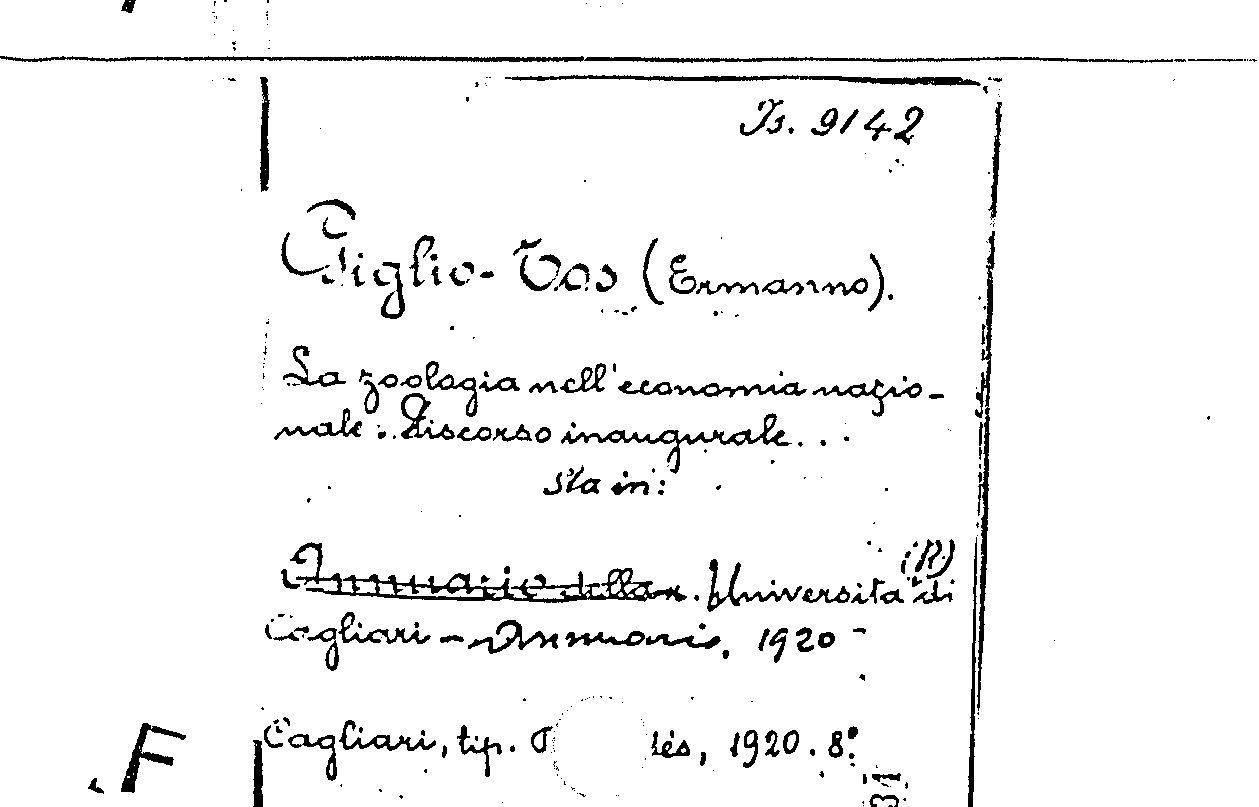 Is. 9142
Giglio-Tos (Ermanno).
La zoologia nell'economia nazio-
nale. Discorso inaugurale...
sta in:
Annuario della R. Università (R) di
Cagliari - Annuario. 1920 -
Cagliari, tip. 1920. 8º
F